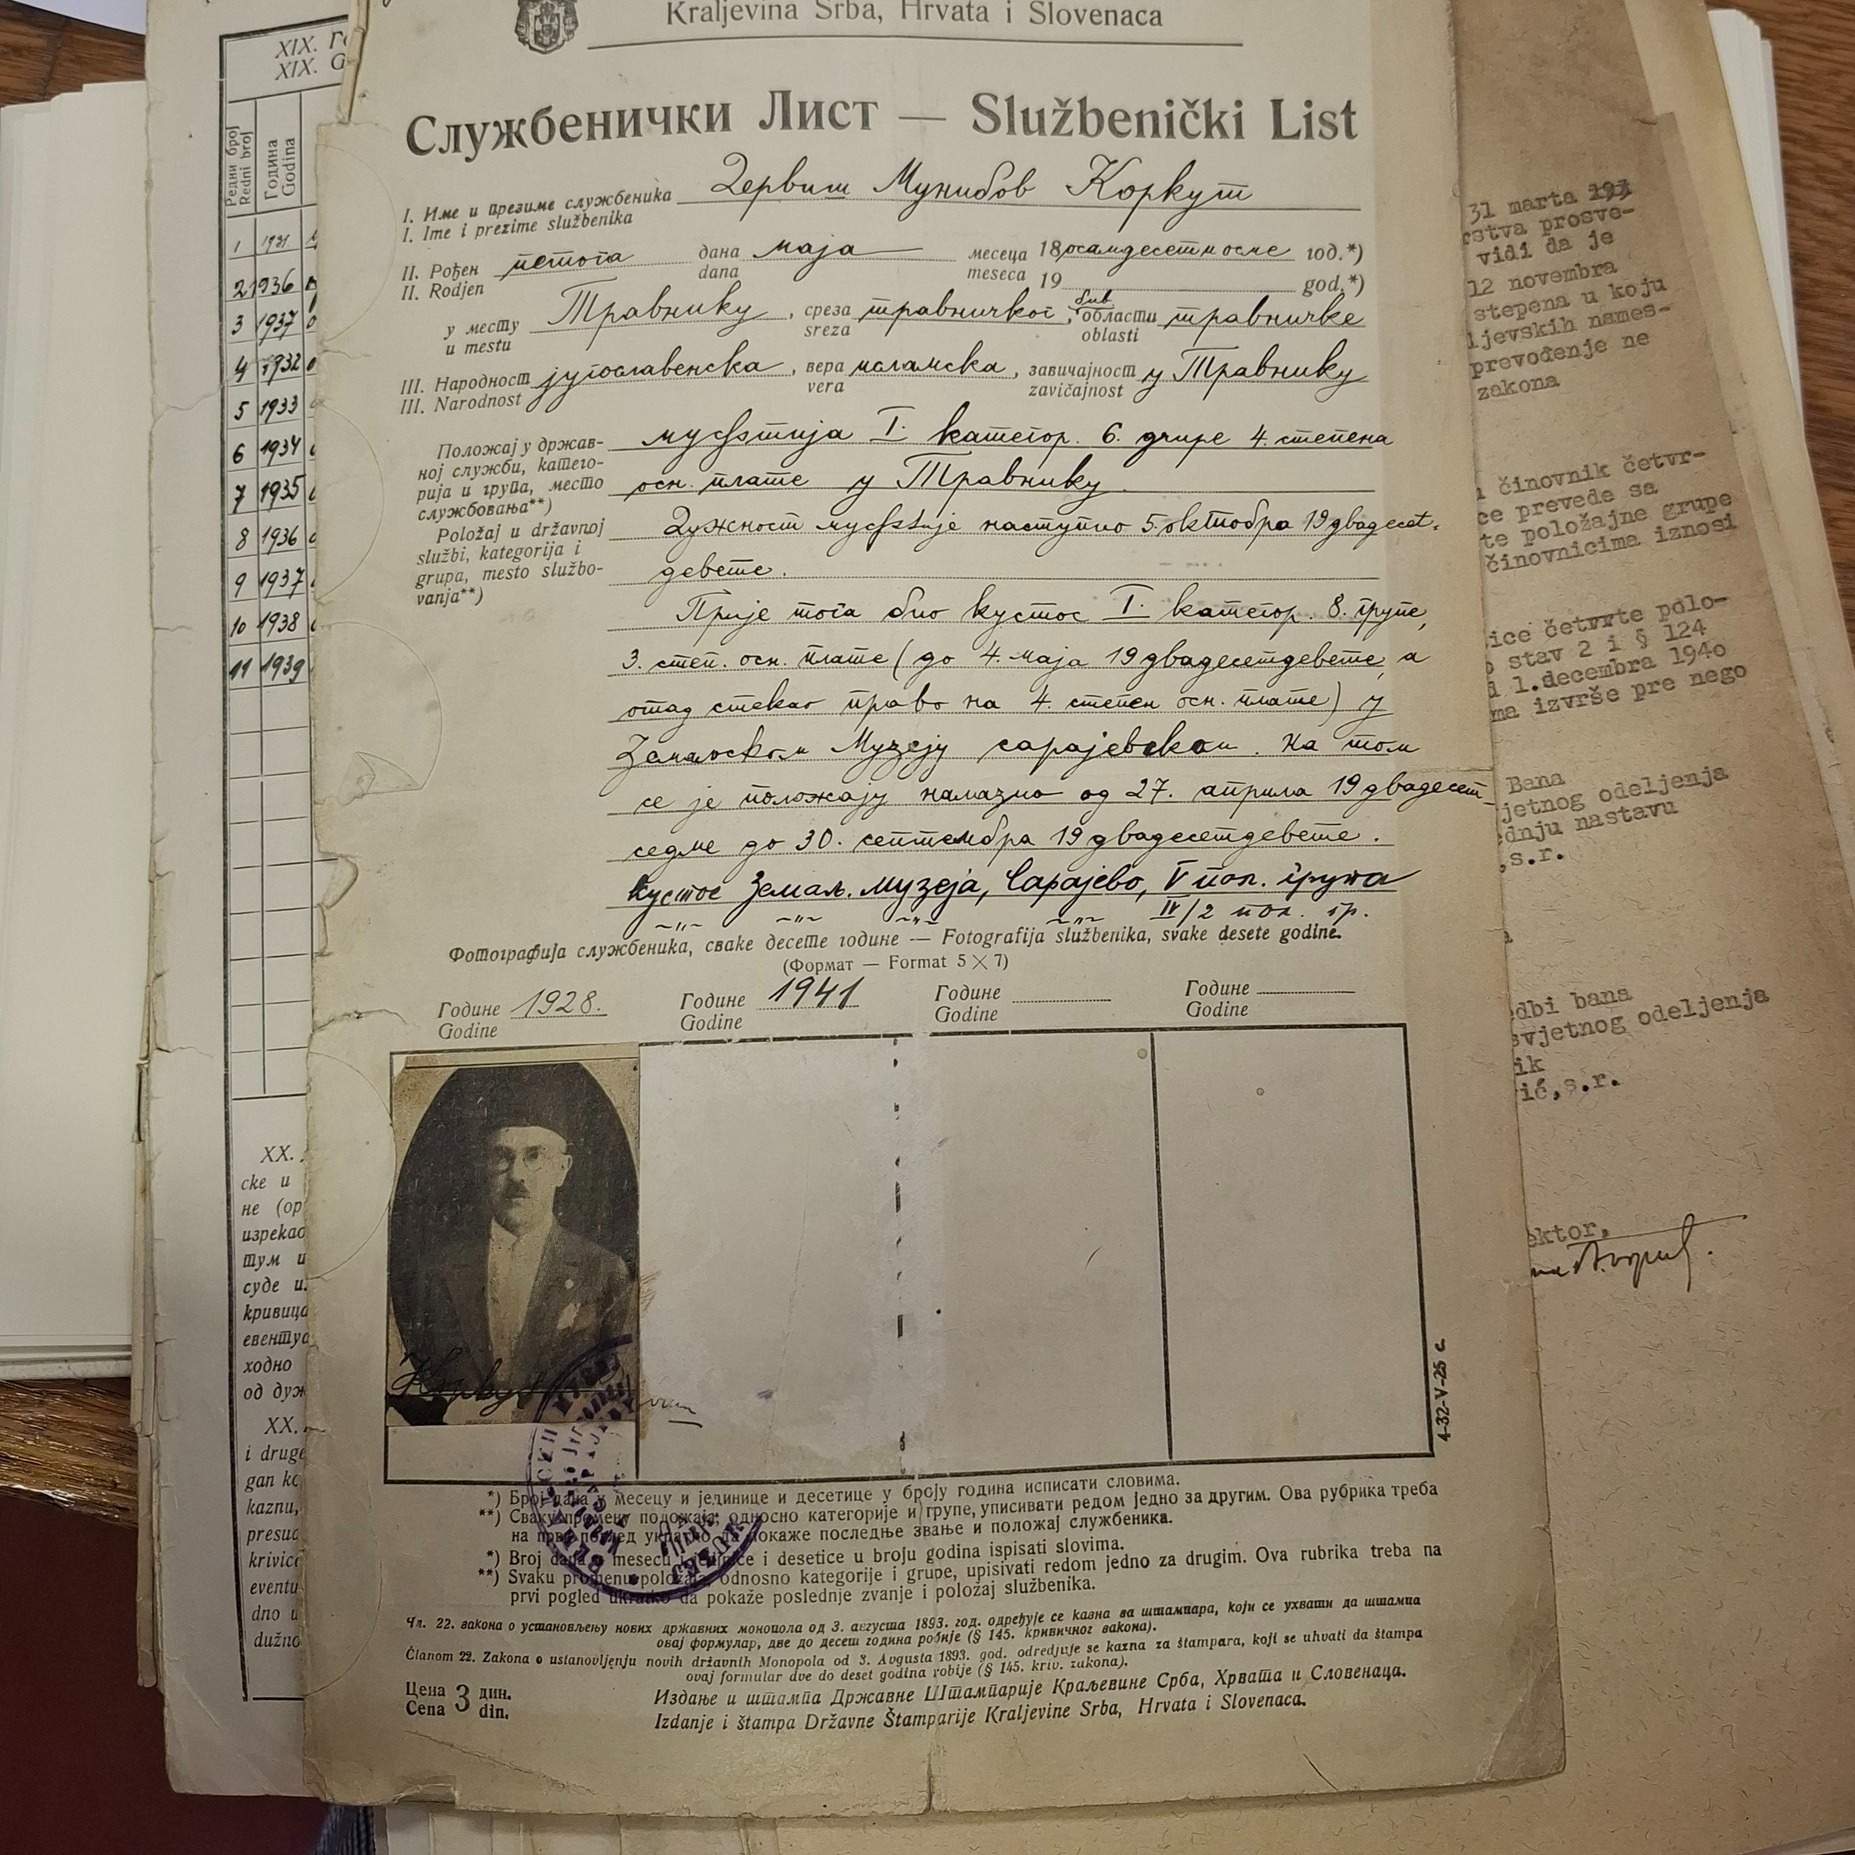 Kraljevina Srba, Hrvata i Slovenaca
Службенички Лист — Službenički List
I. Име и презиме службеника Дервиш Мунибов Коркут
I. Ime i prezime službenika
II. Рођен петога дана маја месеца 18осамдесетосме год.*)
II. Rodjen dana meseca 19 god.*)
у месту Травнику, среза травничког, бив. области травничке
u mestu sreza oblasti
III. Народност југославенска, вера исламска, завичајност у Травнику
III. Narodnost vera zavičajnost
Положај у држав-
ној служби, катего-
рија и група, место
службовања**)
Položaj u državnoj
službi, kategorija i
grupa, mesto službo-
vanja**)
муфтија I. категор. 6. групе 4. степена
осн. плате у Травнику.
Дужност муфтије наступио 5. октобра 19двадесет-
девете.
Прије тога био кустос I. категор. 8. групе,
3. степ. осн. плате (до 4. маја 19двадесетдевете, а
отад стекао право на 4. степен осн. плате) у
Земаљском Музеју сарајевском. На том
се је положају налазио од 27. априла 19двадесет-
седме до 30. септембра 19двадесетдевете.
Кустос Земаљ. музеја, Сарајево, V пол. група
—„— —„— —„— —„— IV/2 пол. гр.
Фотографија службеника, сваке десете године — Fotografija službenika, svake desete godine.
(Формат — Format 5 × 7)
Године 1928. Године 1941 Године Године
Godine Godine Godine Godine
Коркут
4-32-V-25 с.
*) Број дана у месецу и јединице и десетице у броју година исписати словима.
**) Сваку промену положаја, односно категорије и групе, уписивати редом једно за другим. Ова рубрика треба
на први поглед укратко да покаже последње звање и положај службеника.
*) Broj dana u mesecu i jedinice i desetice u broju godina ispisati slovima.
**) Svaku promenu položaja, odnosno kategorije i grupe, upisivati redom jedno za drugim. Ova rubrika treba na
prvi pogled ukratko da pokaže poslednje zvanje i položaj službenika.
Чл. 22. закона о установљењу нових државних монопола од 3. августа 1893. год. одређује се казна за штампара, који се ухвати да штампа
овај формулар, две до десет година робије (§ 145. кривичног закона).
Članom 22. Zakona o ustanovljenju novih državnih Monopola od 3. Avgusta 1893. god. odredjuje se kazna za štampara, koji se uhvati da štampa
ovaj formular dve do deset godina robije (§ 145. kriv. zakona).
Цена 3 дин.
Cena din.
Издање и штампа Државне Штампарије Краљевине Срба, Хрвата и Словенаца.
Izdanje i štampa Državne Štamparije Kraljevine Srba, Hrvata i Slovenaca.
XIX.
XIX.
Редни број
Redni broj
Година
Godina
1 1931
2 1936
3 1937
4 1932
5 1933
6 1934
7 1935
8 1936
9 1937
10 1938
11 1939
XX.
ске и
не (ор
изрекао
тум и
суде и
кривица
евентуа
ходно
од дуж
XX.
i druge
gan ko
kaznu,
presud
krivica
eventu
dno u
dužno
31 marta
rstva prosve-
vidi da je
12 novembra
stepena u koju
ljevskih names-
prevođenje ne
zakona
činovnik četvr-
ce prevede sa
te položajne grupe
činovnicima iznosi
ice četvrte polo-
stav 2 i § 124
1.decembra 1940
ma izvrše pre nego
Bana
jetnog odeljenja
dnju nastavu
,s.r.
dbi bana
svjetnog odeljenja
ik
ić,s.r.
ektor,